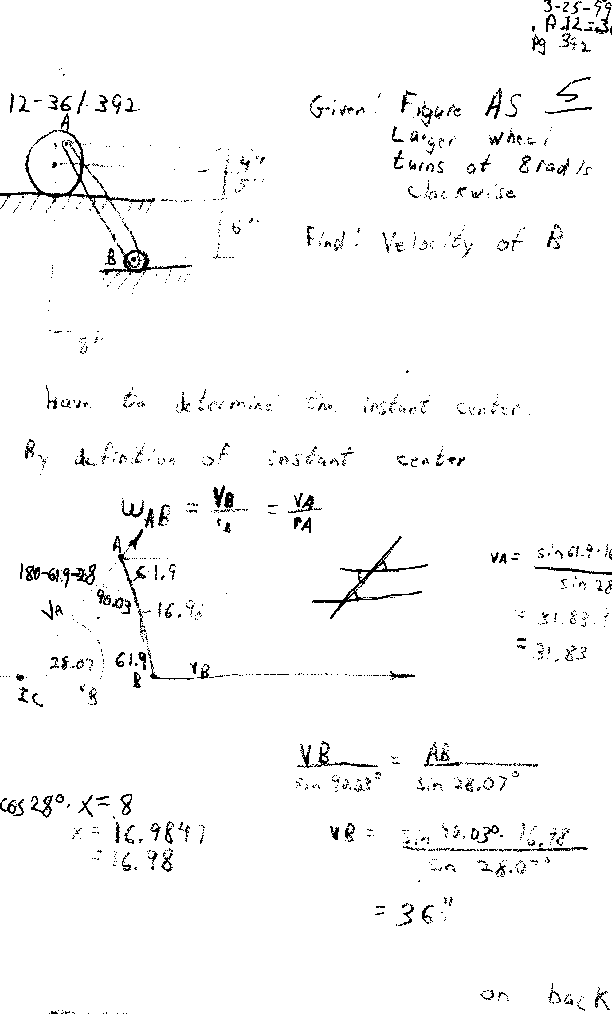 3-25-99
Pg 392
12-36/392
Given: Figure AS
Larger wheel
turns at 8 rad/s
clockwise
A
4"
5"
6"
B
Find: Velocity of B
8"
Have to determine the instant center.
By definition of instant center
WAB = VB = VA
rA
A
180-61.9-28
61.9
VA
90.03
16.98
28.07
61.9
IC
B
VB
VA = sin61.9.16
sin 28
= 31.83
= 31.83
VB = AB
sin 90.03° sin 28.07°
cos 28°. x = 8
x = 16.9847
= 16.98
VB = sin 90.03°. 16.98
sin 28.07°
= 36"
on back